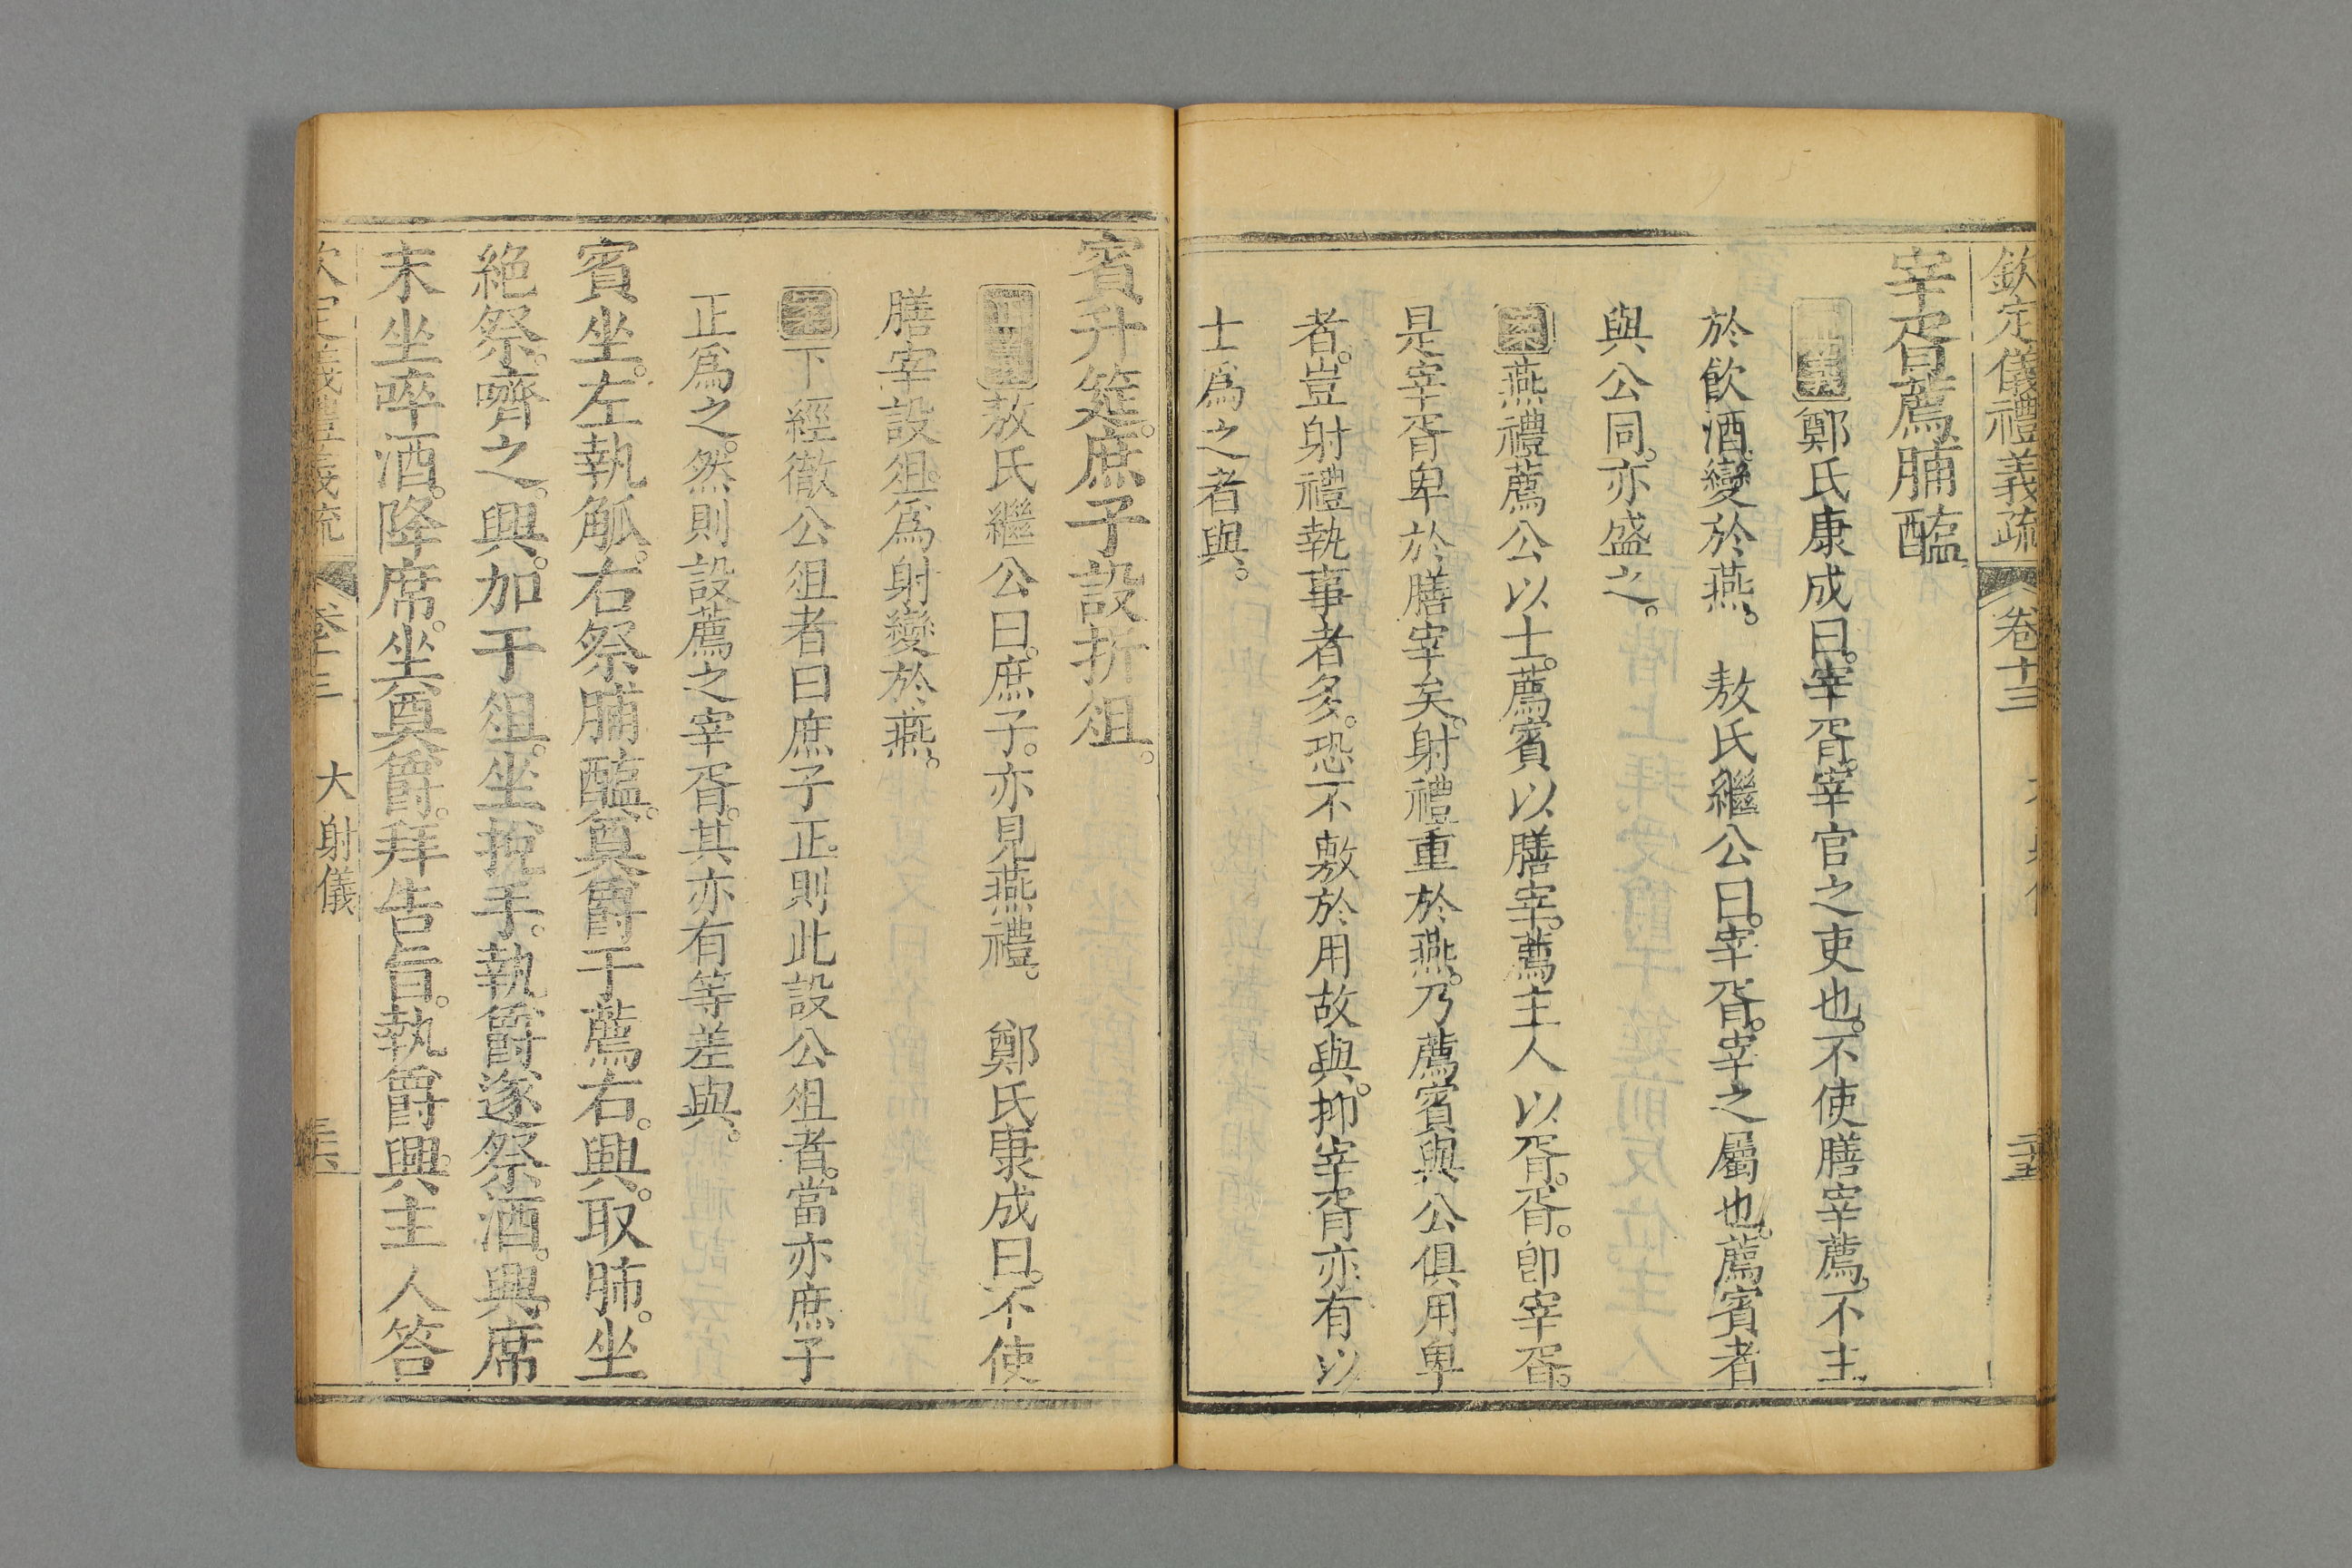 欽定儀禮義疏 卷十三
宰胥薦脯醢。
鄭氏康成曰。宰胥。宰官之吏也。不使膳宰薦。不主
於飲酒。變於燕。 敖氏繼公曰。宰胥。宰之屬也。薦賓者
與公同。亦盛之。
案燕禮薦公以士。薦賓以膳宰。薦主人以胥。胥。卽宰胥。
是宰胥卑於膳宰矣。射禮重於燕。乃薦賓與公俱用卑
者。豈射禮執事者多。恐不敷於用故與。抑宰胥亦有以
士爲之者與。
賓升筵。庶子設折俎。
敖氏繼公曰。庶子。亦見燕禮。 鄭氏康成曰。不使
膳宰設俎。爲射變於燕。
案下經徹公俎者曰庶子正。則此設公俎者。當亦庶子
正爲之。然則設薦之宰胥。其亦有等差與。
賓坐。左執觚。右祭脯醢。奠爵于薦右。興。取肺。坐
絶祭。嚌之。興。加于俎。坐挩手。執爵遂祭酒。興。席
末坐啐酒。降席。坐奠爵。拜告旨。執爵興。主人答
大射儀